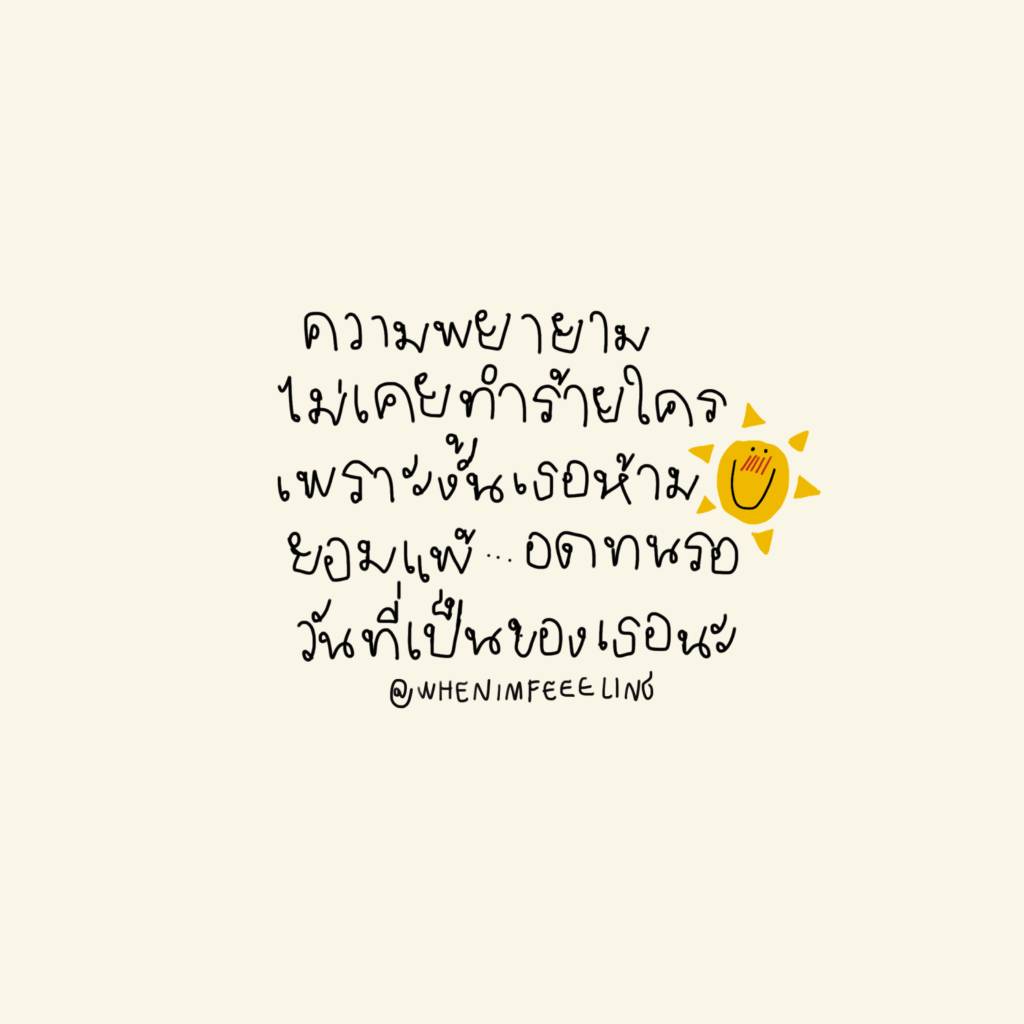 ความพยายาม
ไม่เคยทำร้ายใคร
เพราะงั้นเธอห้าม
ยอมแพ้ ... อดทนรอ
วันที่เป็นของเธอนะ
@WHENIMFEEELING